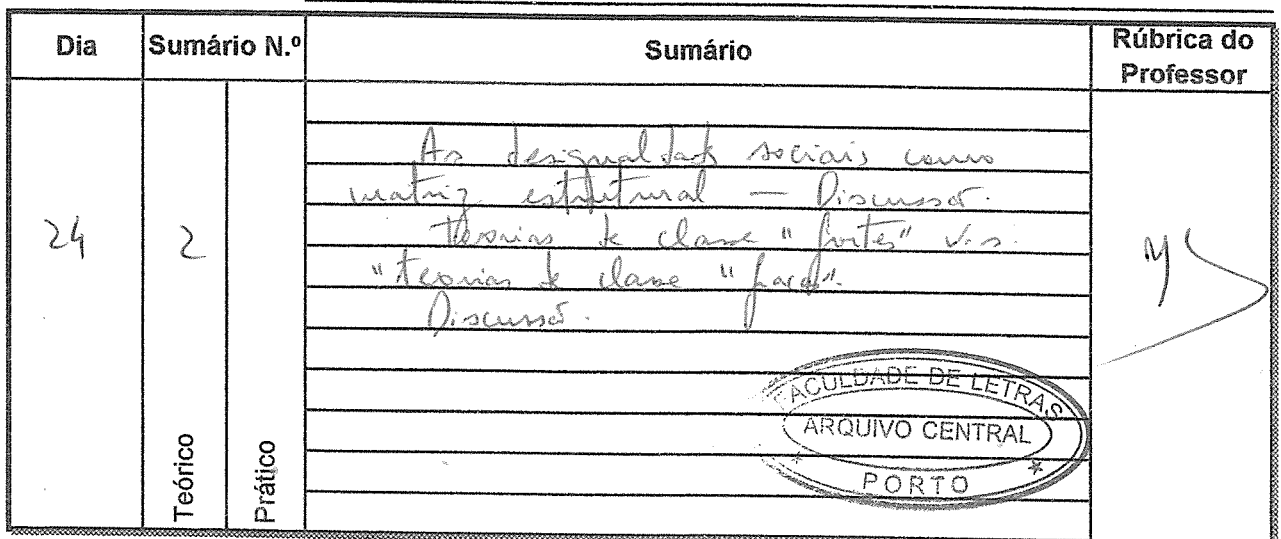 Dia
Sumário N.º
Sumário
Rúbrica do
Professor
24
2
Teórico
Prático
As desigualdades sociais como
matriz estrutural — Discussão.
Teorias de classe "fortes" v.s.
"teorias de classe "fracas".
Discussão.
FACULDADE DE LETRAS
ARQUIVO CENTRAL
PORTO